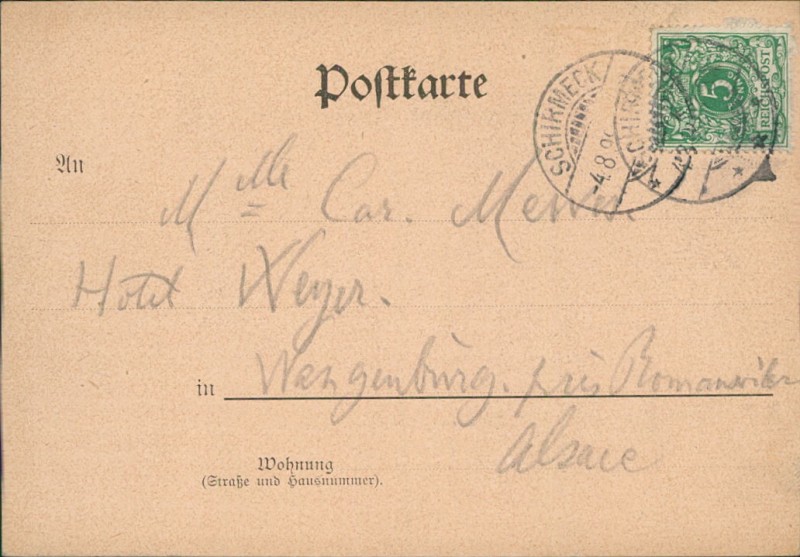 Postkarte
SCHIRMECK
-4.8.9
5
REICHSPOST
An
Mlle Car.
Hotel Weyer.
in Wangenburg. près Romanswiler
Alsace
Wohnung
(Straße und Hausnummer).